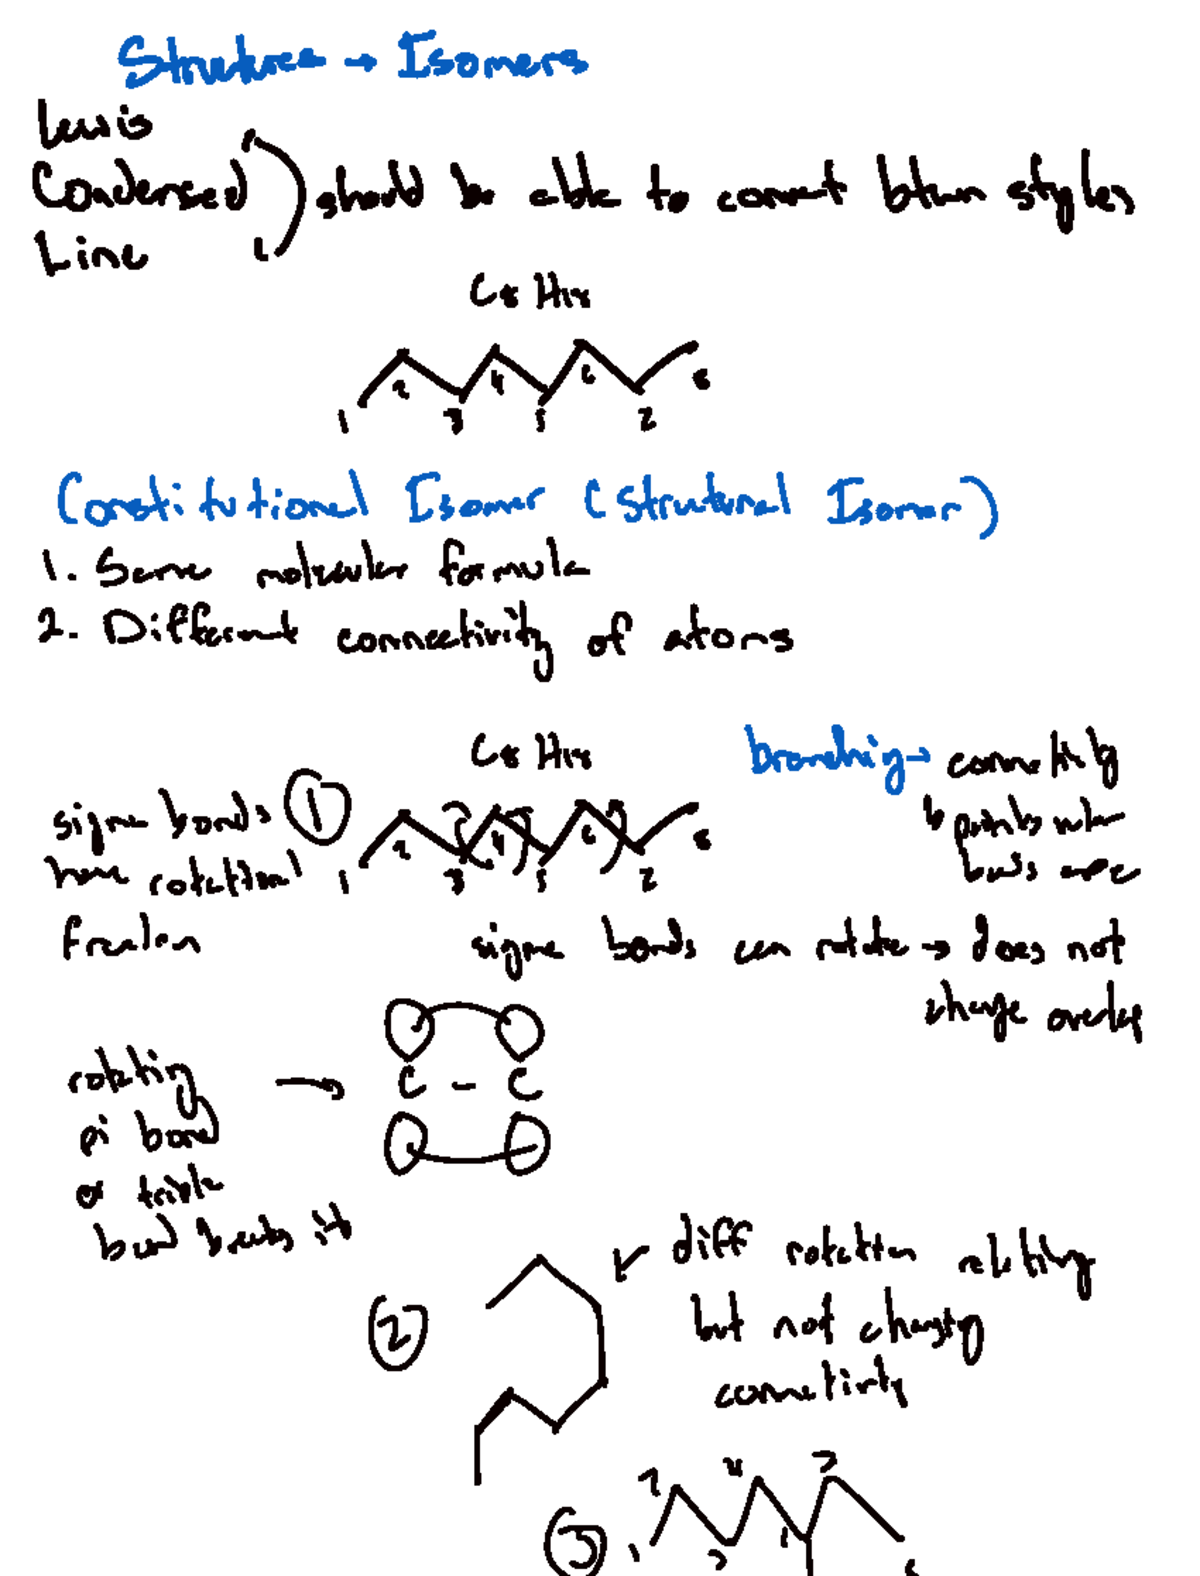 Structures → Isomers
Lewis
Condensed
Line
should be able to convert btwn styles
C8 H18
1 2 3 4 5 6 7 8
Constitutional Isomer (Structural Isomer)
1. Same molecular formula
2. Different connectivity of atoms
C8 H18
branching → connectivity
↳ points when
sigma bonds
have rotational
freedom
1
1 2 3 4 5 6 7 8
sigma bonds can rotate → does not
change overlap
rotating →
pi bond
or triple
bond breaks it
C - C
diff rotation relating
but not changing
connectivity
2
3
1 2 3 4